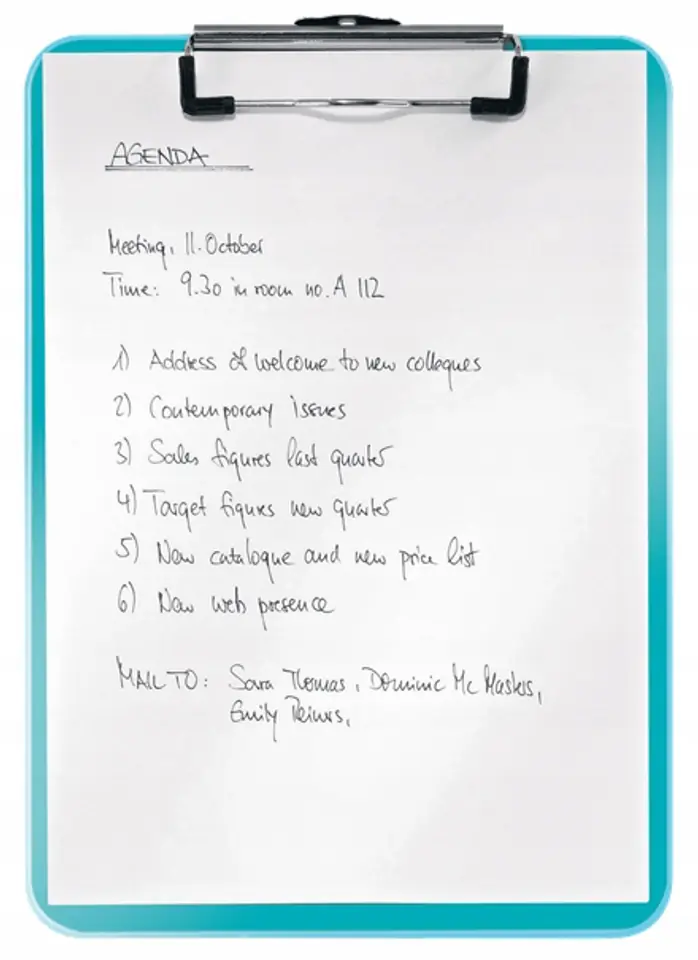 AGENDA
Meeting, 11. October
Time: 9.30 in room no. A 112
1) Address of welcome to new colleques
2) Contemporary issues
3) Sales figures last quarter
4) Target figures new quarter
5) New catalogue and new price list
6) New web presence
MAIL TO: Sara Thomas, Dominic Mc Masters,
Emily